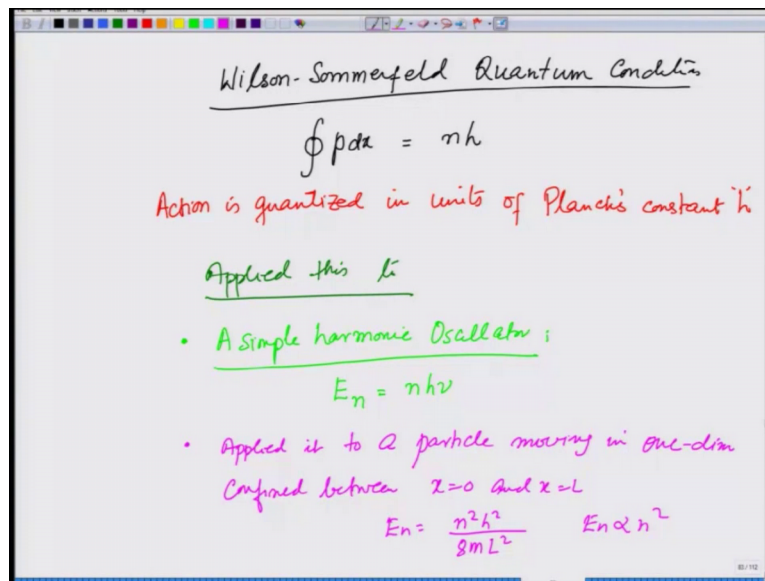 Wilson-Sommerfeld Quantum Condition
∮ pdx = nh
Action is quantized in units of Planck's constant 'h'
Applied this to
• A simple harmonic Oscillator :
En = nhν
• Applied it to a particle moving in one-dim
confined between x=0 and x=L
En = n²h²/8mL² En ∝ n²